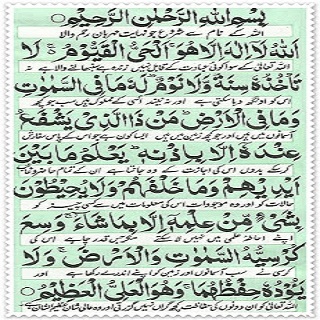 بِسْمِ اللهِ الرَّحْمٰنِ الرَّحِيْمِ
اللہ کے نام سے شروع جو نہایت مہربان رحم والا
اَللهُ لَآ اِلٰهَ اِلَّا هُوَ اَلْحَيُّ الْقَيُّوْمُ لَا
اللہ تعالیٰ کے سوا کوئی عبادت کے قابل نہیں زندہ ہے
تَاْخُذُهٗ سِنَةٌ وَّلَا نَوْمٌ لَهٗ مَا فِي السَّمٰوٰتِ
نہ اس کو اونگھ دبا سکتی ہے اور نہ نیند اسی کے
وَمَا فِي الْاَرْضِ مَنْ ذَا الَّذِيْ يَشْفَعُ
آسمانوں میں ہیں اور جو کچھ زمین میں ہیں ایسا کون ہے جو اس کے پاس سفارش
عِنْدَهٗٓ اِلَّا بِاِذْنِهٖ يَعْلَمُ مَا بَيْنَ
کر سکے بدوں اس کی اجازت کے وہ جانتا ہے ان کے تمام حاضر
اَيْدِيْهِمْ وَمَا خَلْفَهُمْ وَلَا يُحِيْطُوْنَ
حالات کو اور وہ موجودات اس کی معلومات میں سے کسی چیز کو
بِشَيْءٍ مِّنْ عِلْمِهٖٓ اِلَّا بِمَا شَآءَ وَسِعَ
اپنے احاطہ علمی میں نہیں لا سکتے مگر جس قدر چاہے اس کی
كُرْسِيُّهُ السَّمٰوٰتِ وَالْاَرْضَ وَلَا
کرسی نے سب آسمانوں اور زمین کو اپنے اندر لے رکھا ہے اور
يَئُوْدُهٗ حِفْظُهُمَا وَهُوَ الْعَلِيُّ الْعَظِيْمُ
اللہ تعالیٰ کو ان دونوں کی حفاظت کچھ گراں نہیں گزرتی اور وہ عالی شان